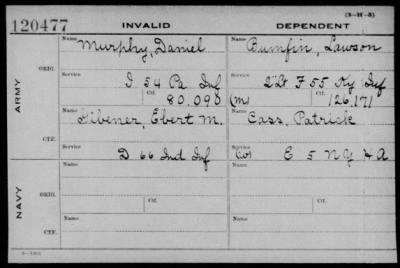 (3-H-8)
120477 INVALID DEPENDENT
ARMY ORIG. Name Murphy, Daniel Name Bumfin, Lawson
Service I 54 Pa Inf Service 2"Lt F 55 Ky Inf
Ctf. 80.090 (m) Ctf. 126.171
CTF. Name Name Cass, Patrick
Ebert M.
Service D 66 Ind Inf Service (w) E 5 N Y H A
NAVY ORIG. Name Name
Service Ctf. Service Ctf.
CTF. Name Name